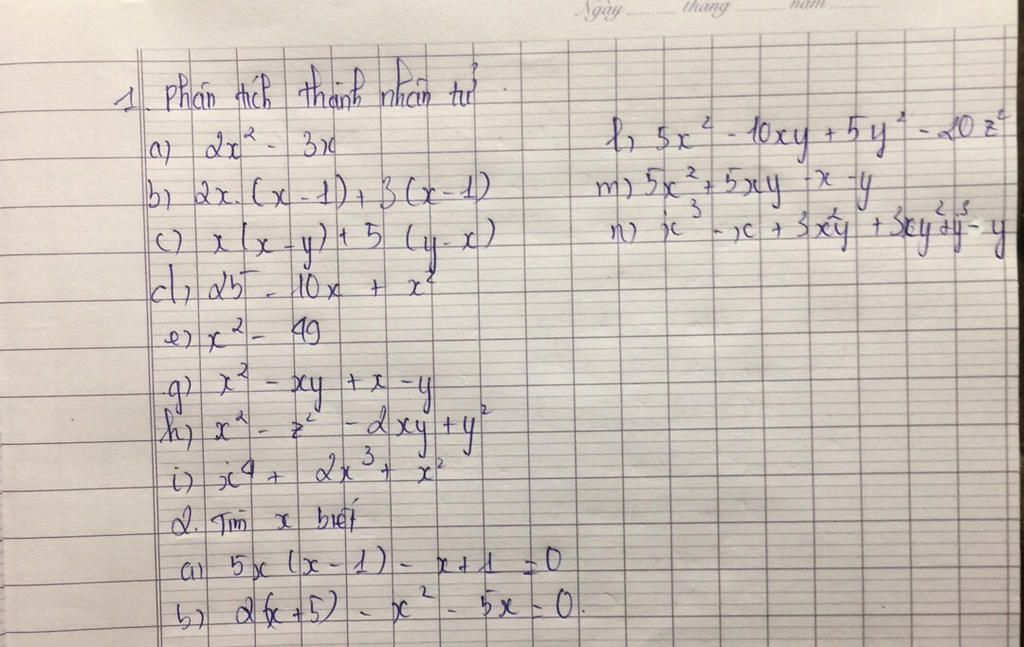 Ngày ......... tháng ......... năm .........
1. Phân tích thành nhân tử
a) 2x² - 3x
b) 2x.(x - 1) + 3(x - 1)
c) x(x - y) + 5 (y - x)
d) 25 - 10x + x²
e) x² - 49
g) x² - xy + x - y
h) x² - z² - 2xy + y²
i) x⁴ + 2x³ + x²
l) 5x² - 10xy + 5y² - 20z²
m) 5x² + 5xy - x - y
n) x³ - x + 3x²y + 3xy² + y³ - y
2. Tìm x biết
a) 5x (x - 1) - x + 1 = 0
b) 2(x + 5) - x² - 5x = 0.